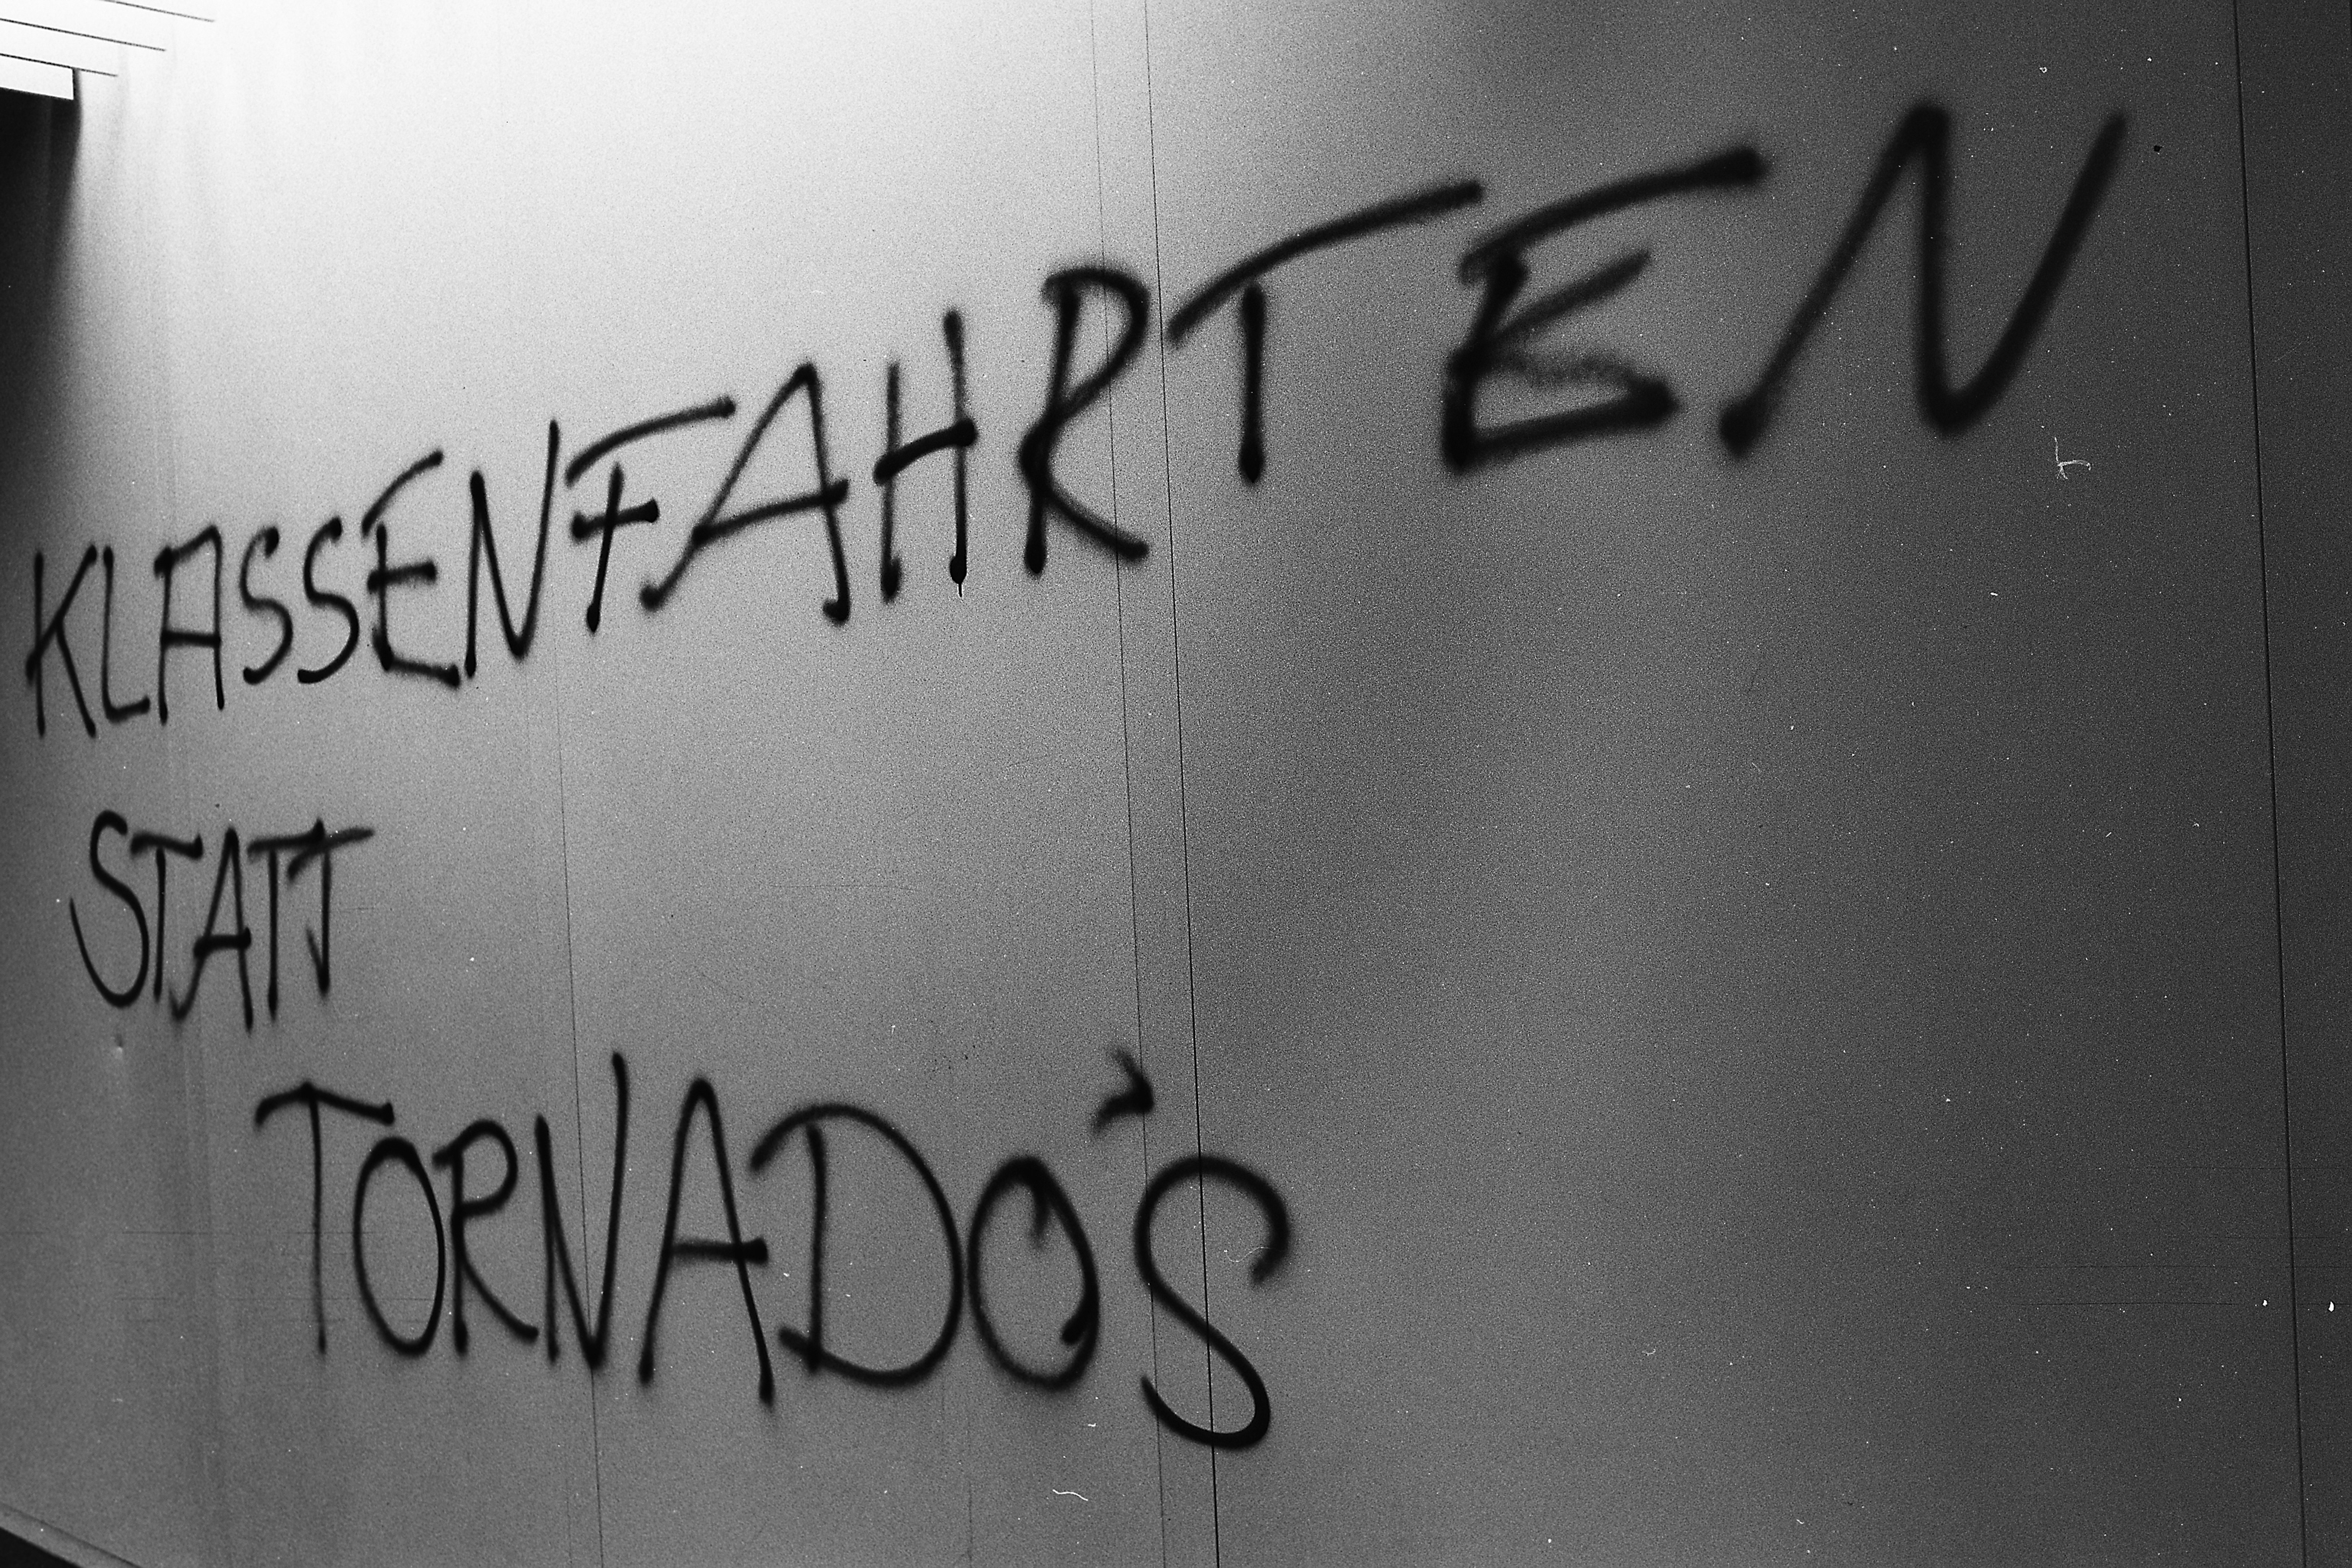 KLASSENFAHRTEN
STATT
TORNADO'S